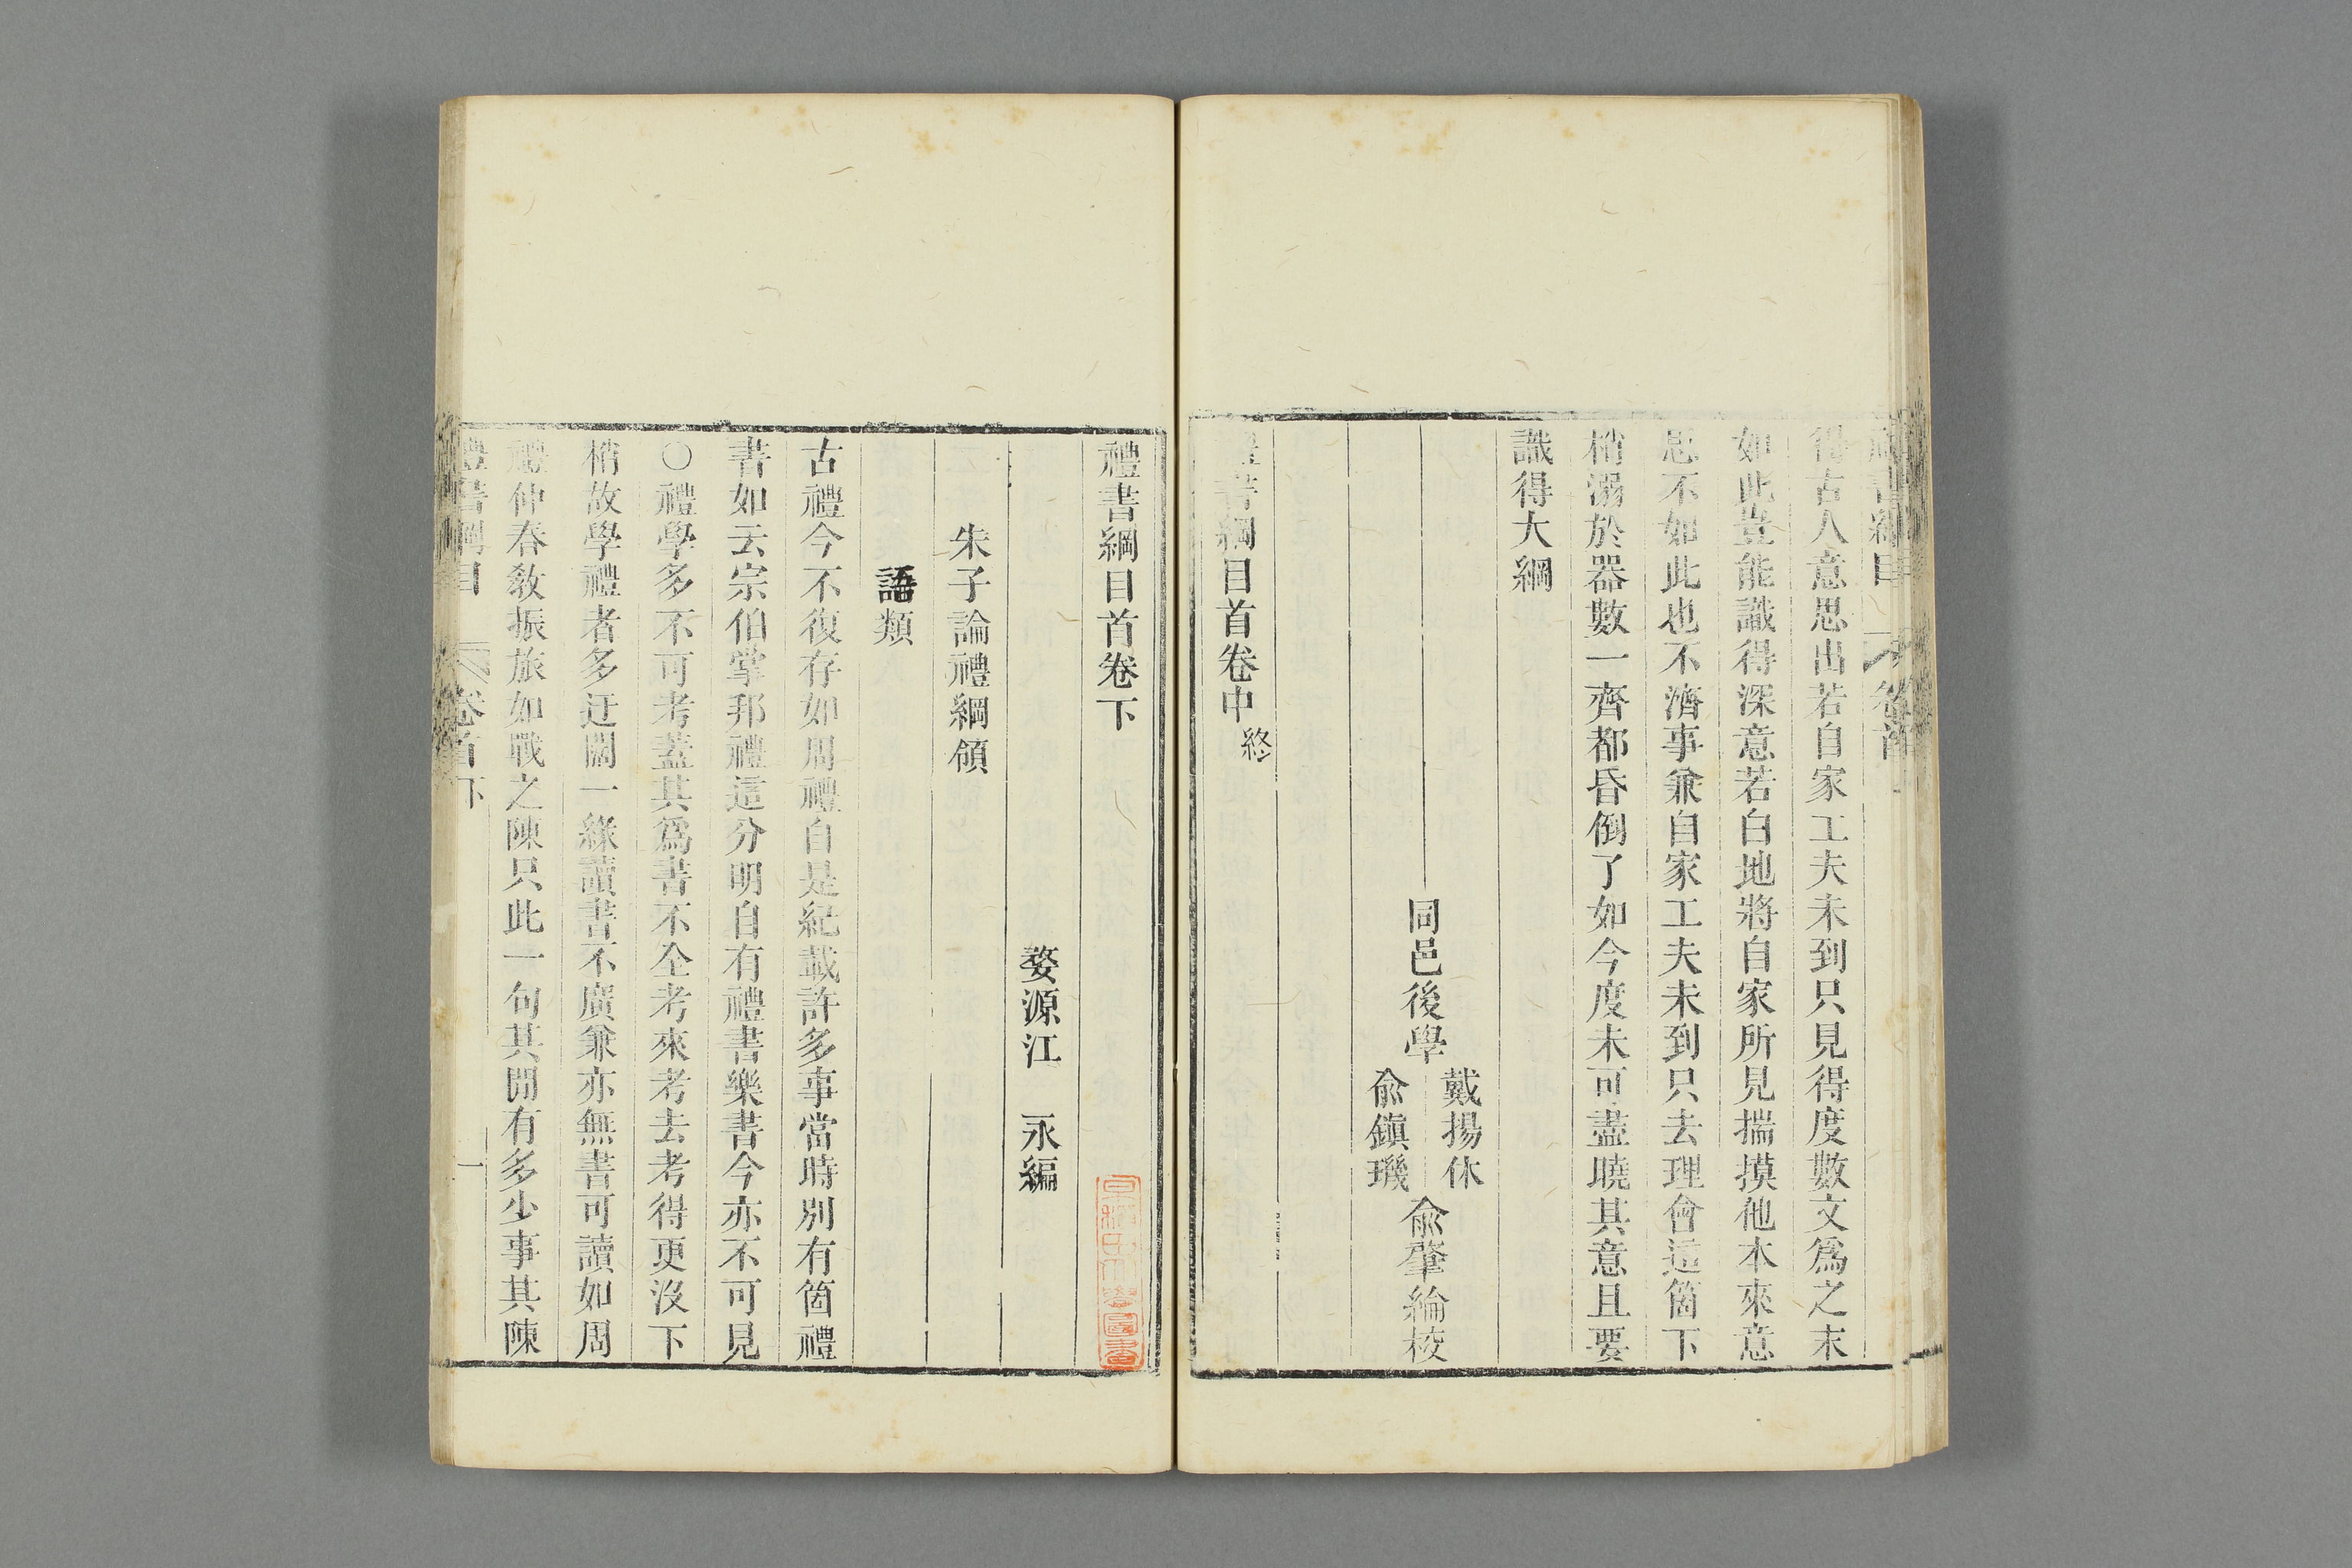 得古人意思出若自家工夫未到只見得度數文爲之末
如此豈能識得深意若白地將自家所見揣摸他本來意
思不如此也不濟事兼自家工夫未到只去理會這箇下
梢溺於器數一齊都昏倒了如今度未可盡曉其意且要
識得大綱
同邑後學 戴揚休 俞肇綸校
俞鎭璣
禮書綱目首卷中 終
禮書綱目首卷下
婺源江 永編
朱子論禮綱領
語類
古禮今不復存如周禮自是紀載許多事當時別有箇禮
書如云宗伯掌邦禮這分明自有禮書樂書今亦不可見
○禮學多不可考蓋其爲書不全考來考去考得更沒下
梢故學禮者多迂闊一緣讀書不廣兼亦無書可讀如周
禮仲春敎振旅如戰之陳只此一句其閒有多少事其陳
禮書綱目 卷首下 一